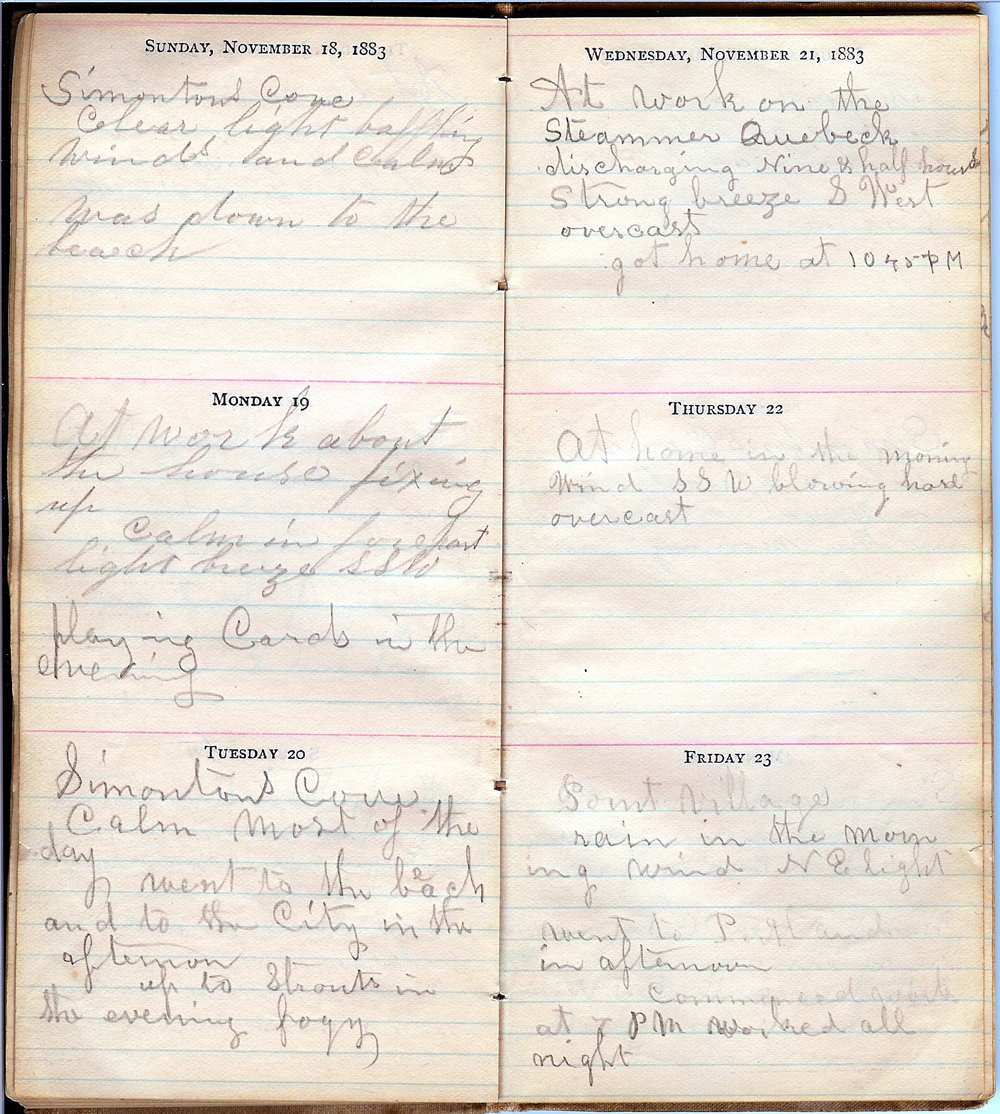 Sunday, November 18, 1883
Simontons Cove
Clear light baffling
winds and calms
was down to the
beach
Monday 19
At work about
the house fixing
up
Calm in forepart
light breeze SSW
playing Cards in the
evening
Tuesday 20
Simontons Cove
Calm most of the
day
went to the beach
and to the City in the
afternoon
up to Strouts in
the evening fogy
Wednesday, November 21, 1883
At work on the
Steammer Quebeck
discharging Nine & half hours
Strong breeze S West
overcast
got home at 10 45 PM
Thursday 22
At home in the morning
Wind SSW blowing hard
overcast
Friday 23
Point Village
rain in the morn
ing wind N E light
went to Portland
in afternoon
Commenced work
at 7 PM worked all
night